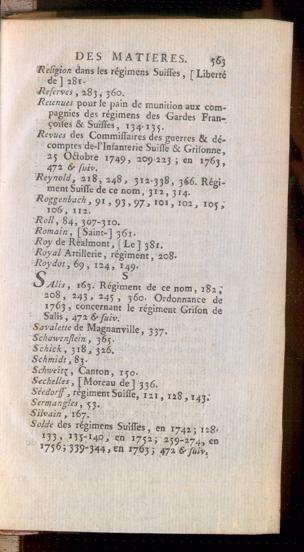 DES MATIERES. 563
Religion dans les régimens Suisses, [Liberté
de] 281.
Reserves, 283, 360.
Retenues pour le pain de munition aux com-
pagnies des régimens des Gardes Fran-
çoises & Suisses, 134-135.
Revues des Commissaires des guerres & dé-
comptes de-l'Infanterie Suisse & Grisonne,
25 Octobre 1749, 209-223; en 1763,
472 & suiv.
Reynold, 218, 248, 312-338, 366. Régi-
ment Suisse de ce nom, 312, 314.
Roggenbach, 91, 93, 97, 101, 102, 105,
106, 112.
Roll, 84, 307-310.
Romain, [Saint-] 361.
Roy de Réalmont, [Le] 381.
Royal Artillerie, régiment, 208.
Roydot, 69, 124, 149.
S
SAlis, 163. Régiment de ce nom, 182,
208, 243, 245, 360. Ordonnance de
1763, concernant le régiment Grison de
Salis, 472 & suiv.
Savalette de Magnanville, 337.
Schawenstein, 365.
Schick, 318, 326.
Schmidt, 83.
Schweitz, Canton, 150.
Sechelles, [Moreau de] 336.
Séedorff, régiment Suisse, 121, 128, 143.
Sermangles, 53.
Silvain, 167.
Solde des régimens Suisses, en 1742; 128-
133, 135-140, en 1752; 259-274, en
1756; 339-344, en 1763; 472 & suiv.